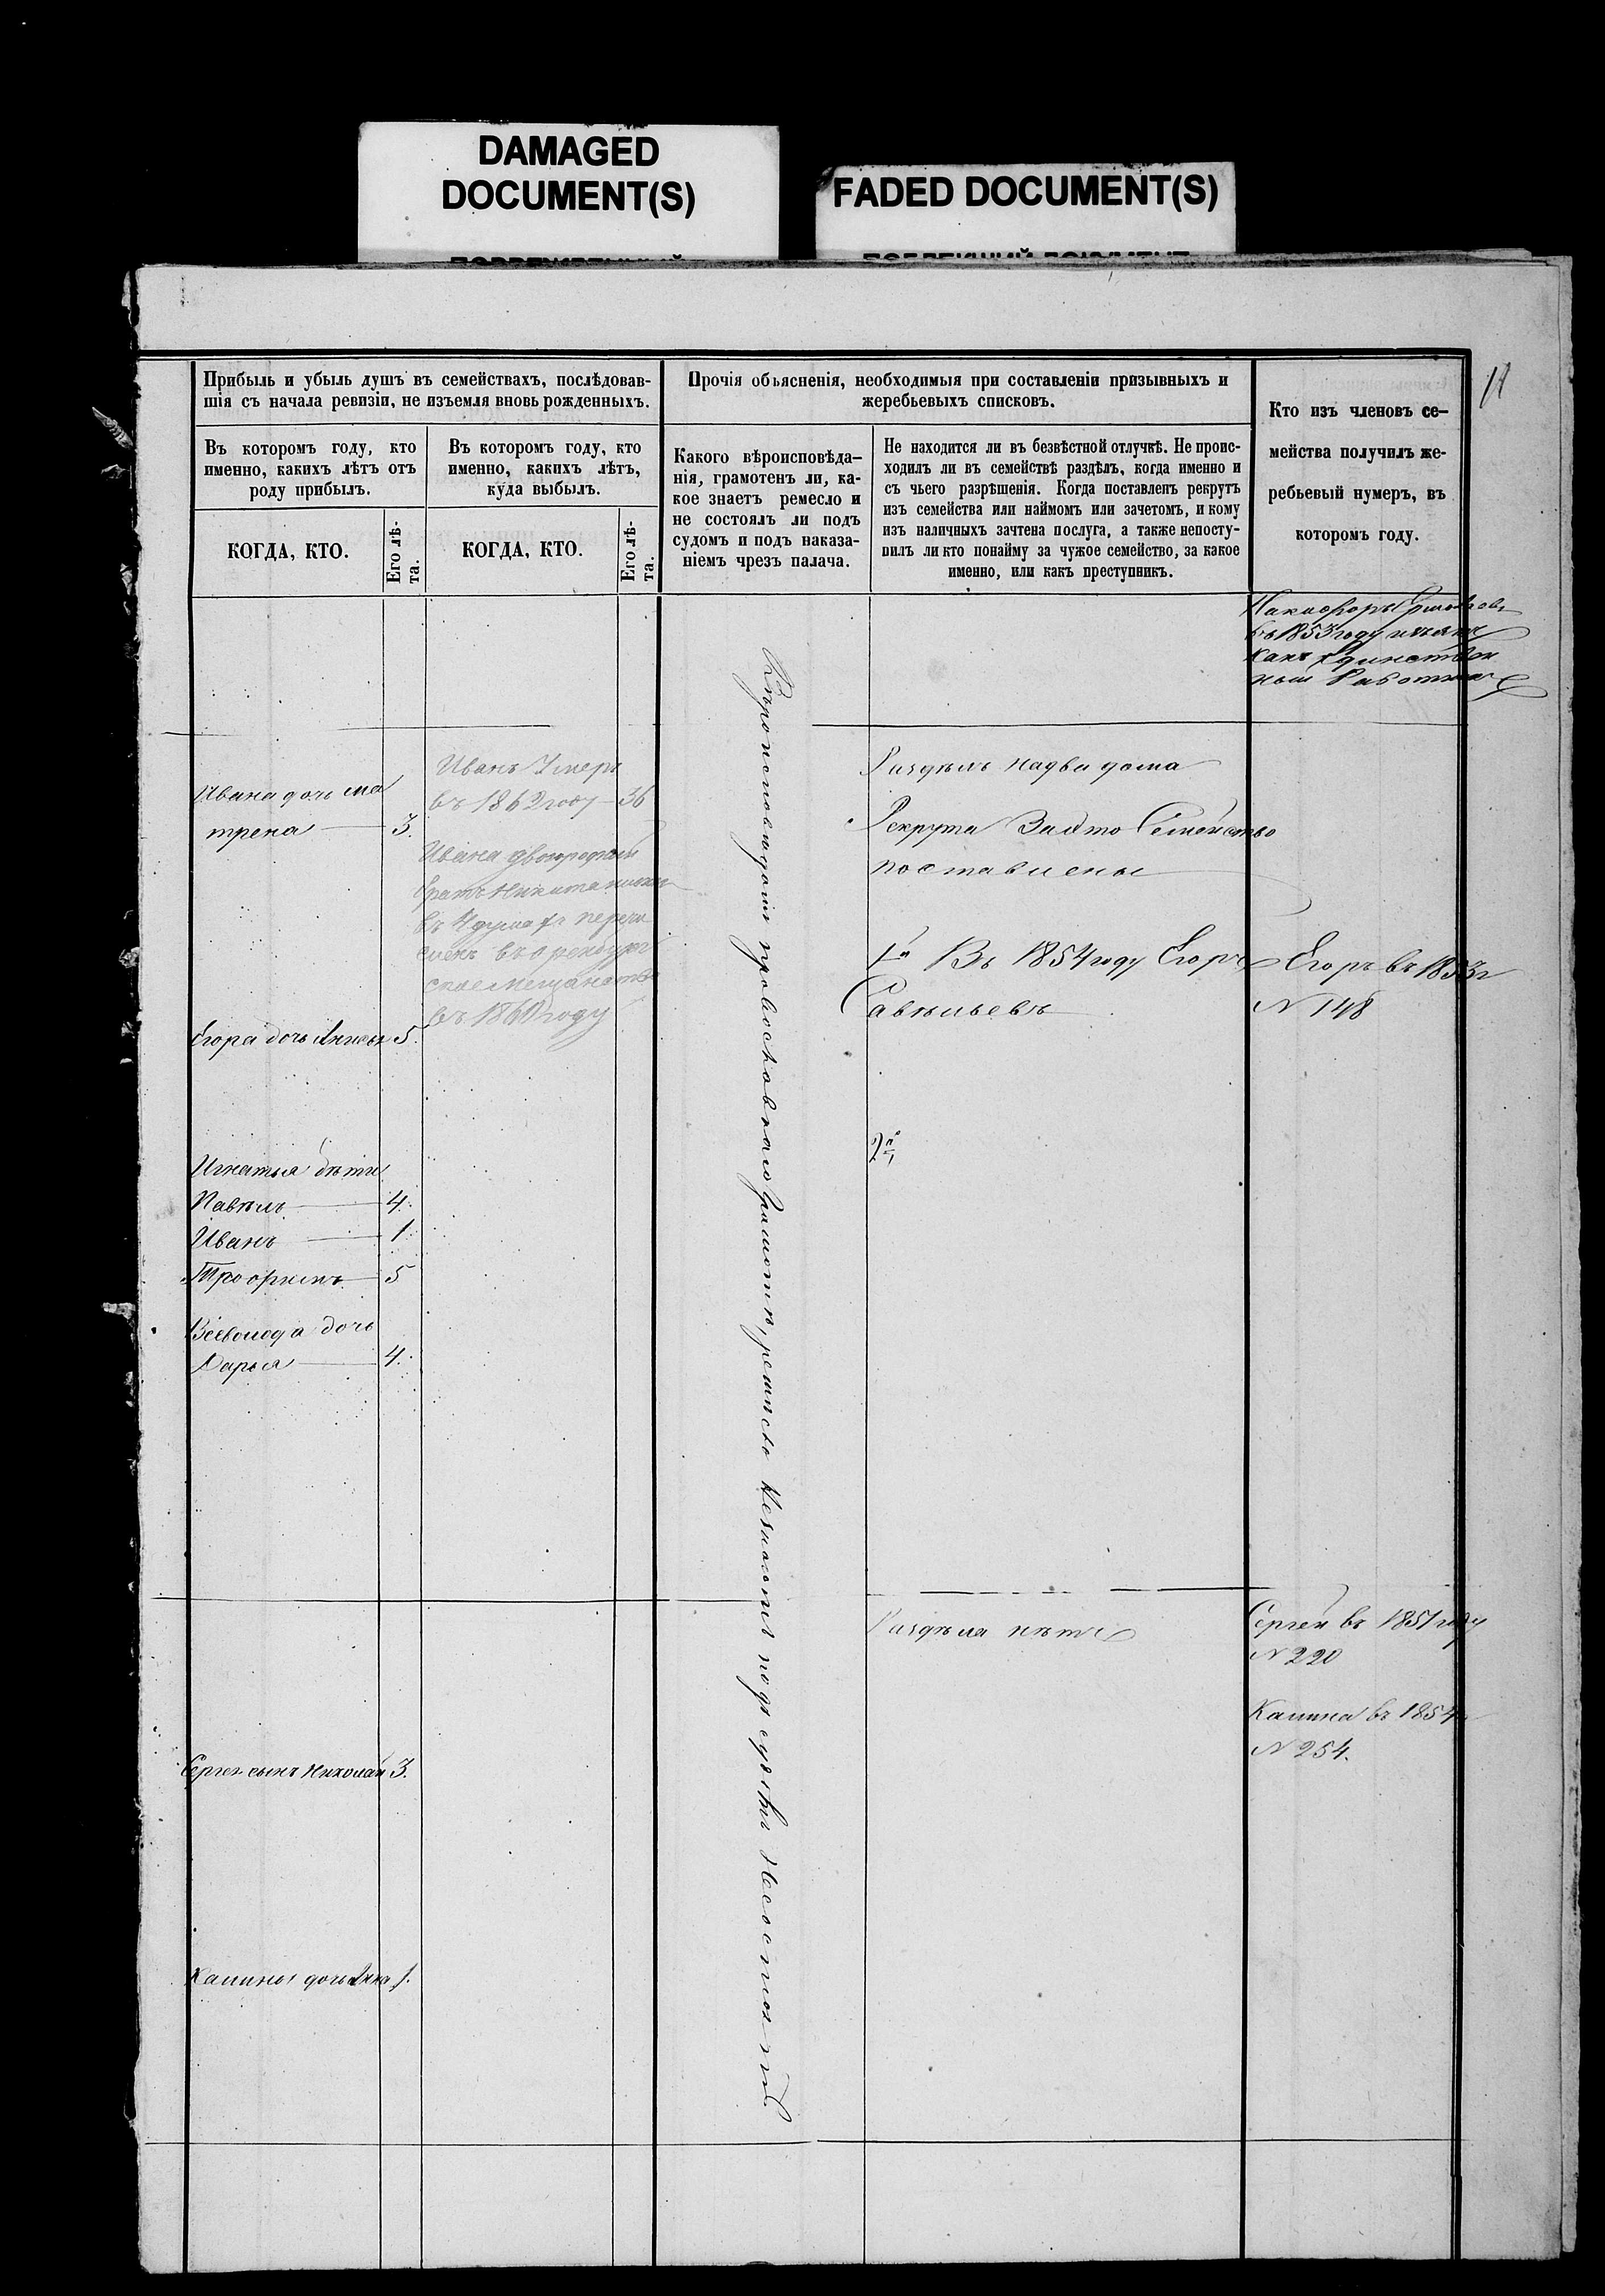 DAMAGED
DOCUMENT(S)
FADED DOCUMENT(S)
11
Прибыль и убыль душъ въ семействахъ, послѣдовав-
шія съ начала ревизіи, не изъемля вновь рожденныхъ.
Въ которомъ году, кто
именно, какихъ лѣтъ отъ
роду прибылъ.
КОГДА, КТО.
Его лѣ-
та.
Въ которомъ году, кто
именно, какихъ лѣтъ,
куда выбылъ.
КОГДА, КТО.
Его лѣ-
та.
Прочія объясненія, необходимыя при составленіи призывныхъ и
жеребьевыхъ списковъ.
Какого вѣроисповѣда-
нія, грамотенъ ли, ка-
кое знаетъ ремесло и
не состоялъ ли подъ
судомъ и подъ наказа-
ніемъ чрезъ палача.
Не находится ли въ безвѣстной отлучкѣ. Не проис-
ходилъ ли въ семействѣ раздѣлъ, когда именно и
съ чьего разрѣшенія. Когда поставленъ рекрутъ
изъ семейства или наймомъ или зачетомъ, и кому
изъ наличныхъ зачтена послуга, а также непосту-
пилъ ли кто понайму за чужое семейство, за какое
именно, или какъ преступникъ.
Кто изъ членовъ се-
мейства получилъ же-
ребьевый нумеръ, въ
которомъ году.
въ 1853 году
какъ Единствен
ный Работник
Ивана дочь Ма
трена 3.
Егора дочь Анисья 5.
Игнатья дѣти
Павелъ 4.
Иванъ 1
Трофимъ 5
Всеволода дочь
Дарья 4.
Сергея сынъ Николай 3.
Калины дочь Анна 1.
Иванъ Умеръ
въ 1862 году 36
Ивана двоюродный
братъ Никита
въ перечи
сленъ въ оренбург
ское мещанство
въ 1860 году
Вѣроисповѣданія православнаго грамотѣ, ремесло незнаютъ подъ судомъ несостоятъ
Раздѣлъ на два дома
Рекрута За это Семейство
поставлены
1й Въ 1854 году Егоръ
Савельевъ
2й
Раздѣла нѣтъ
Егоръ въ 1853 г
N 148
Сергей въ 1851 году
N 220
Калина въ 1854
N 254.